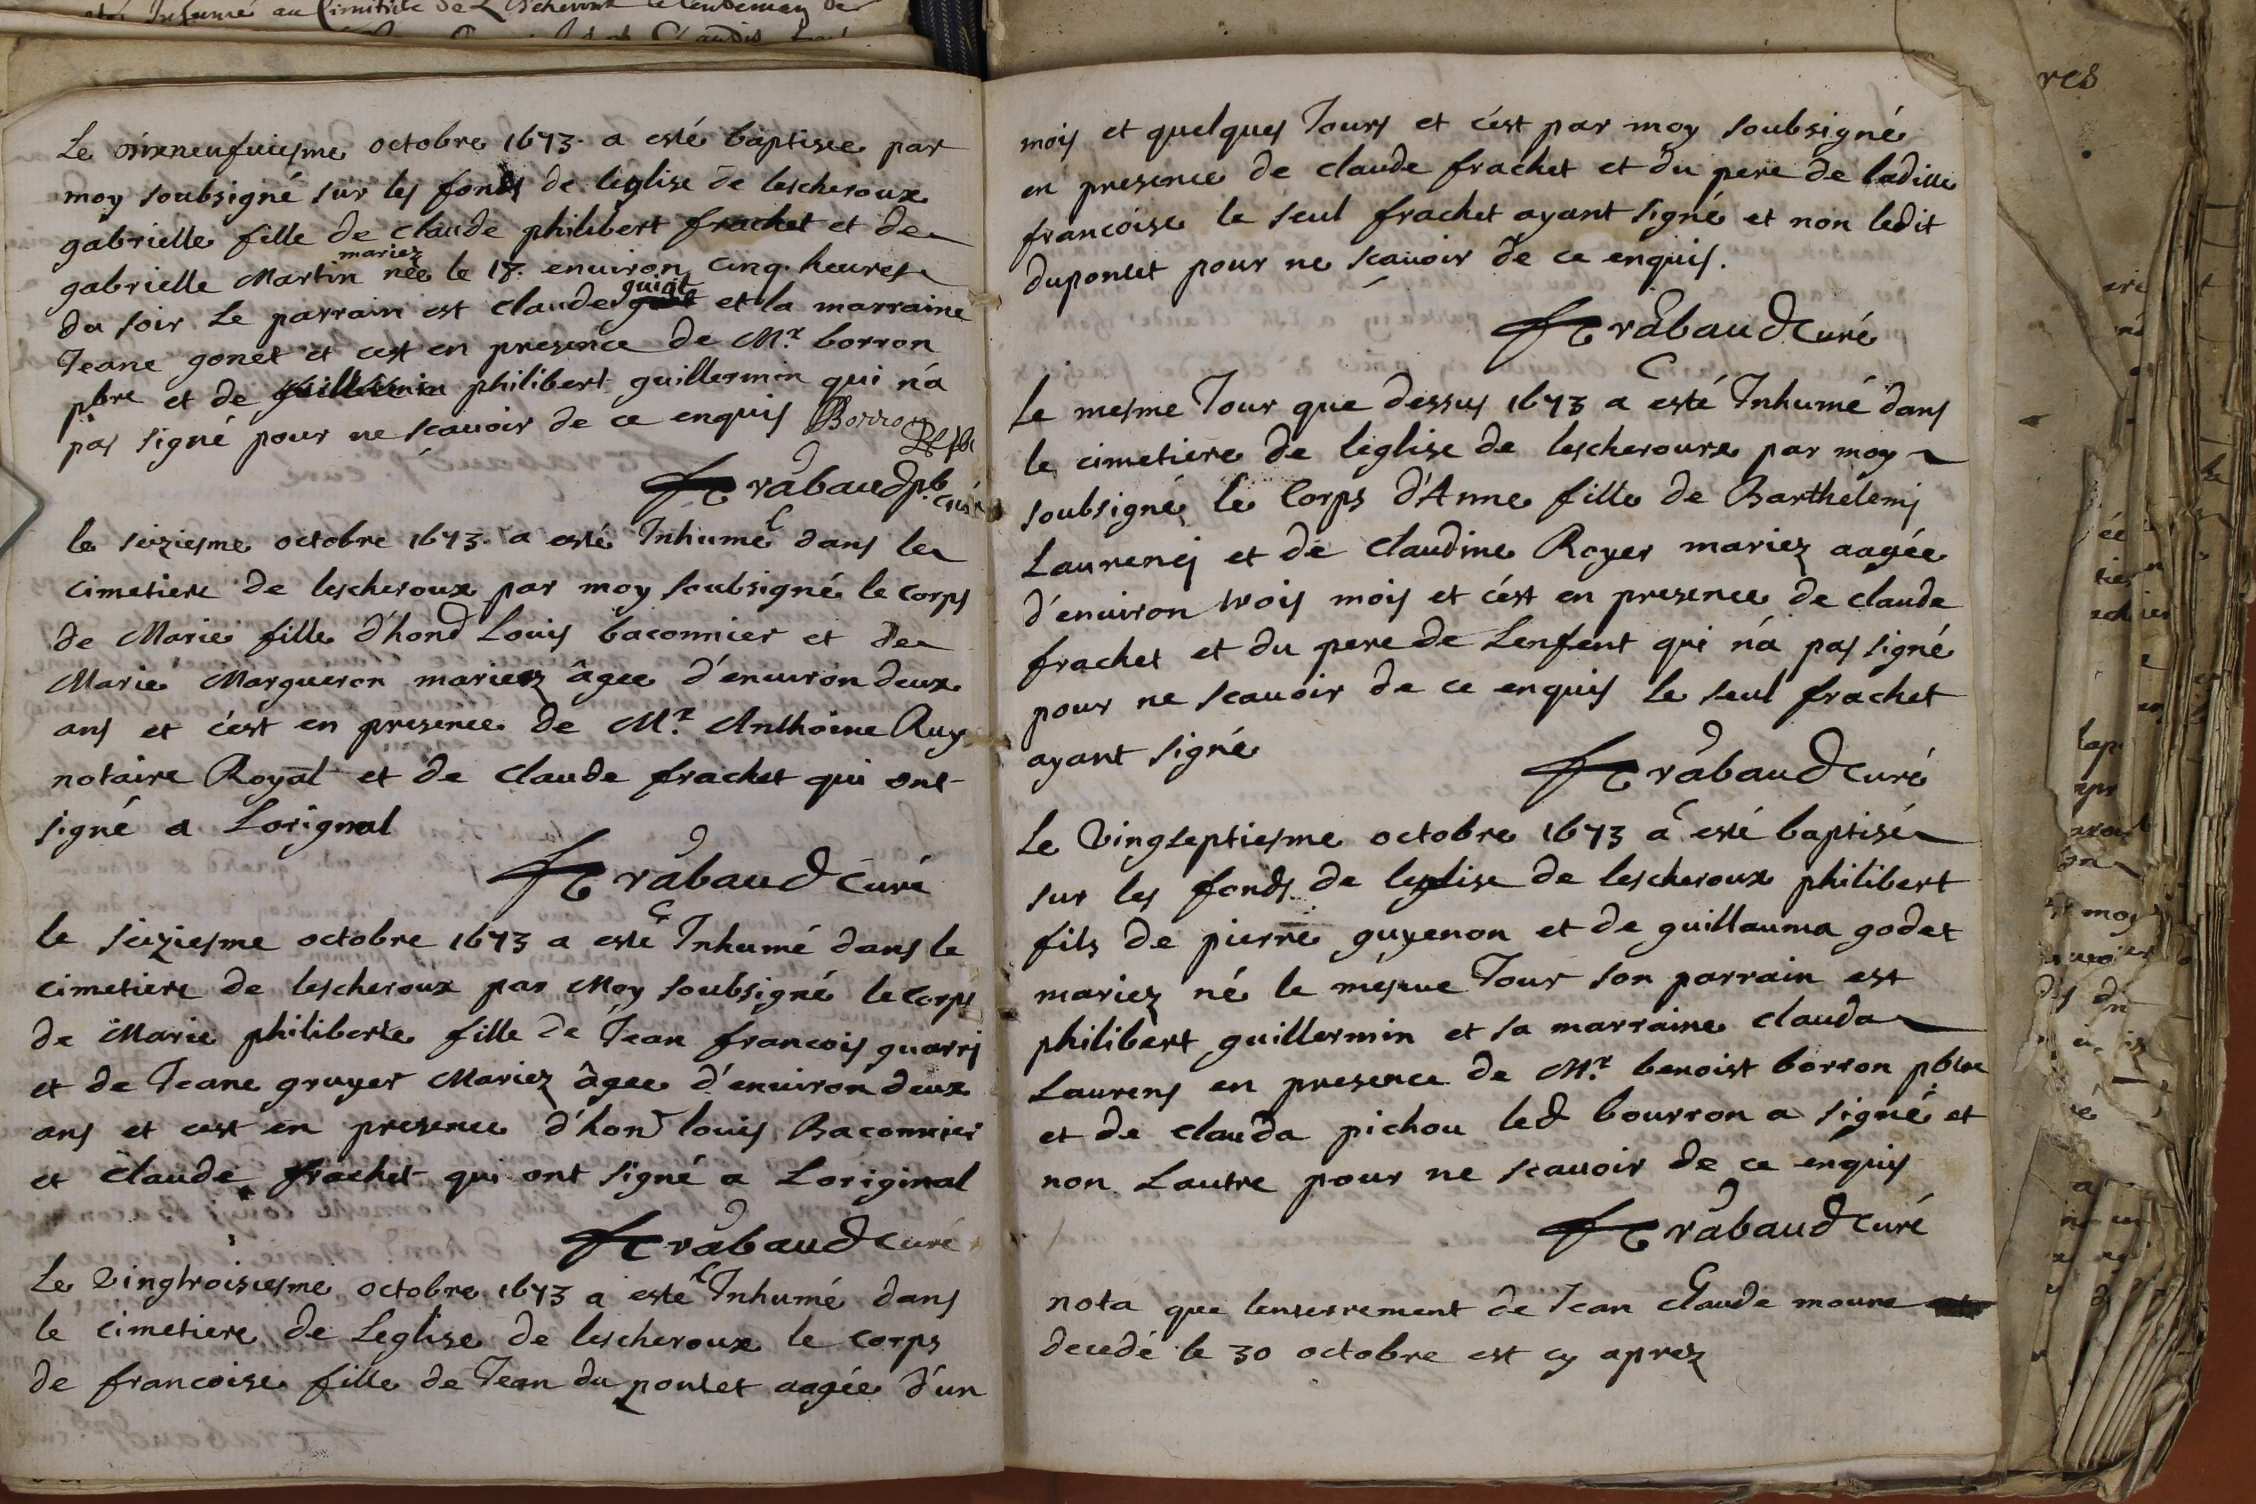 Inhumé au Cimitiere de Lescheroux le lendemain de
Le dixneufuiesme octobre 1673. a esté baptisée par
moy soubsigné sur les fonds de leglise de lescheroux
gabrielle fille de claude philibert frachet et de
mariez
gabrielle Martin née le 18. enuiron cinq heures
guiot
du soir Le parrain est claude et la marraine
Jeane gonet et cest en presence de Mr. borron
pbre et de guillermin philibert guillermin qui n'a
pas signé pour ne scauoir de ce enquis Borron
Pbre
F rabaud pb. curé
le seiziesme octobre 1673. a esté Inhumé dans le
cimetiere de lescheroux par moy soubsigné le corps
de Marie fille d'hond Louis baconnier et de
Marie Margueron mariez âgee d'enuiron deux
ans et c'est en presence de Mr. Anthoine Ruy
notaire Royal et de claude frachet qui ont
signé a Lorignal
F rabaud Curé
le seiziesme octobre 1673 a esté Inhumé dans le
cimetiere de lescheroux par Moy soubsigné le Corps
de Marie philiberte fille de Jean francois guarri
et de Jeane gruyer Mariez âgee d'enuiron deux
ans et cest en presence d'hond louis Baconnier
et claude frachet qui ont signé a Loriginal
F rabaud Curé
Le Vingtroisiesme octobre 1673 a esté Inhumé dans
le cimetiere de Leglise de lescheroux le corps
de francoise fille de Jean du pontet aagée d'un
mois et quelques Jours et c'est par moy soubsigné
en presence de claude frachet et du pere de laditte
francoise le seul frachet ayant signé et non ledit
dupontet pour ne scauoir de ce enquis.
F rabaud Curé
Le mesme Jour que dessus 1673 a esté Inhumé dans
le cimetiere de leglise de lescheroux par moy
soubsigné le Corps d'Anne fille de Barthelemj
Laurencj et de claudine Royer mariez aagée
d'enuiron trois mois et c'est en presence de claude
frachet et du pere de Lenfent qui n'a pas signé
pour ne scauoir de ce enquis le seul frachet
ayant signé
F rabaud Curé
Le Vingseptiesme octobre 1673 a esté baptisé
sur les fonds de leglise de lescheroux philibert
fils de pierre guyenon et de guillauma godet
mariez né le mesme Jour son parrain est
philibert guillermin et sa marraine clauda
Laurens en presence de Mr. benoist borron pbtre
et de clauda pichou led bourron a signé et
non Lautre pour ne scauoir de ce enquis
F rabaud Curé
nota que lenterrement de Jean Claude moure
decedé le 30 octobre est cy aprez
res